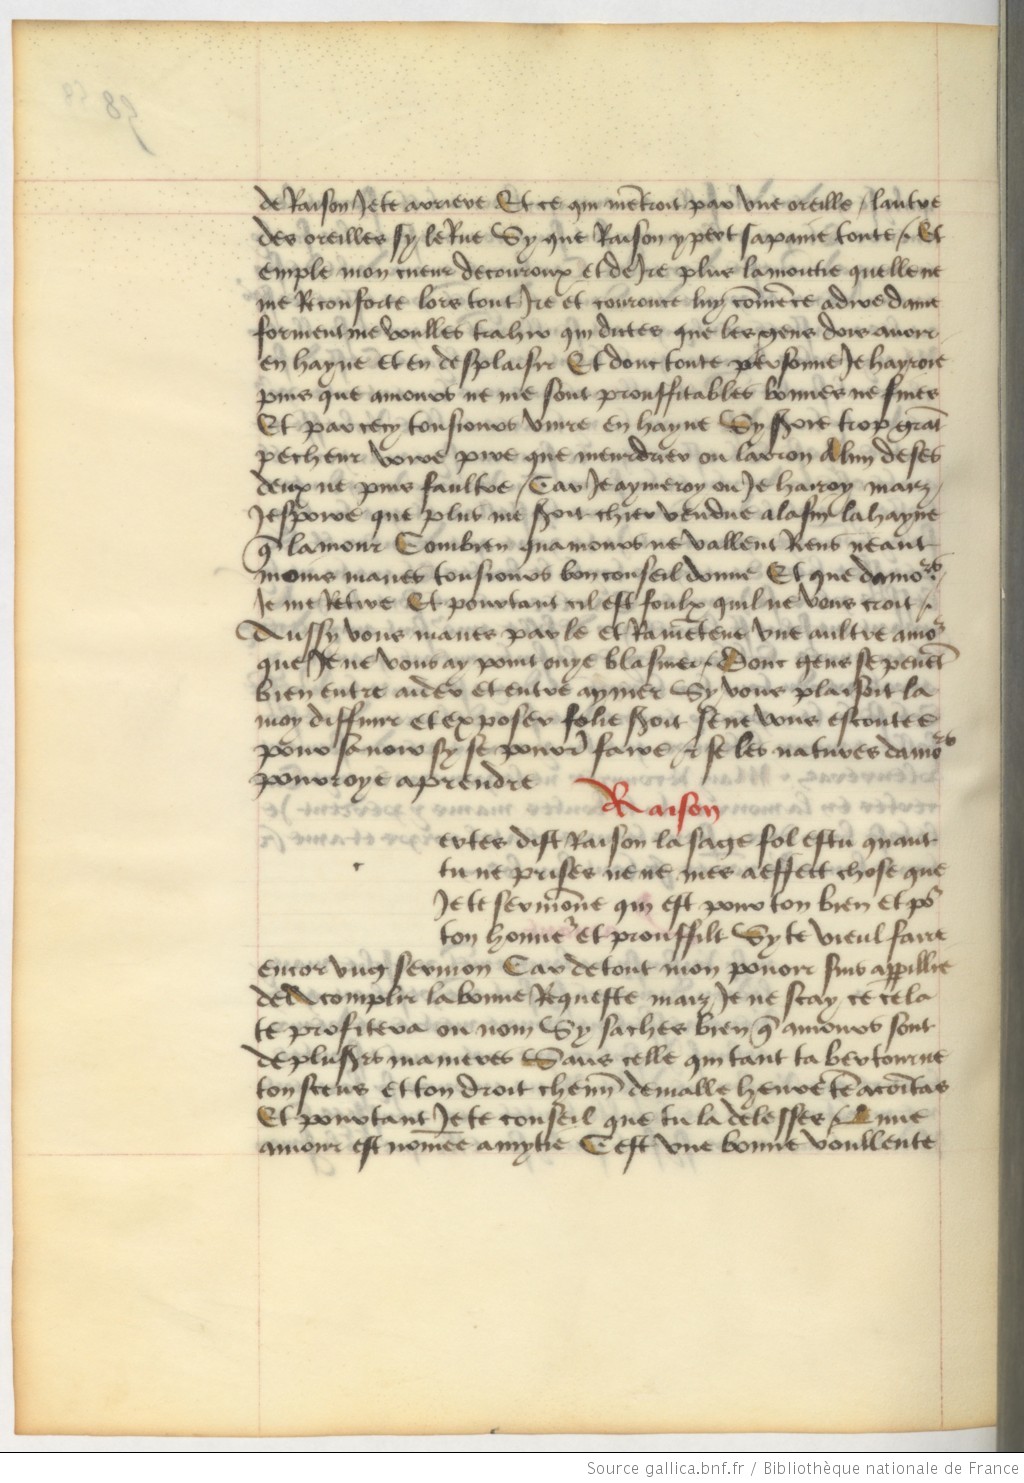 de Raison Je te arriere Et ce qui me͂troit par une oreille / lautre
des oreilles sy le Rue Sy que Raison y pert sa paine toute /. Et
emple mon cueur de couroux et de Jre plus la moictie quelle ne
me Reconforte lors tout Jre et cource luy co͂me͂ce a dire dame
forment me voulles trahir qui dictes que les gens dois avoir
en hayne et en desplaisir Et donc toute personne Je hayroie
puis que amours ne me sont prouffitables bonnes ne fines
Et par cecy tousiours vivre en hayne Sy seroie trop gra͂t
pecheur voire pire que meurdrier ou larron A lun de ses
deux ne puis faultre / Car Je aymeroy ou Je hairoy maiz
Jespoire que plus me soit chier vendue a la fin la hayne
q͂ lamour Combien quamours ne vallent Riens neant
moins maves tousiours bon conseil donne Et que damors
Je me Retire Et pourtant cil est foulx quil ne vous croit /.
Aussy vous maves parle et Rame͂teue une aultre amor
que Je ne vous ay point ouye blasmer / Dont gens se peuet
bien entre aider et entre aymer Sy vous plaisoit la
moy diffinir et exposer folie seroit se ne vous escoutes
pour savoir sy se pourr͂ faire & se les natures damors
pourroye aprendre
Raison
ertes dist Raison la sage fol es tu quant
tu ne prises ne ne mes a effect chose que
Je te sermo͂ne qui est pour ton bien et po͂
ton honner et prouffilt Sy te vieul faire
encor ung sermon Car de tout mon povoir suis appillie
de acomplir la bonne Requeste maiz Je ne scay ce cela
te profitera ou nom Sy saches bien q͂ amours sont
de plusers manieres Sans celle qui tant ta bertourne
ton scens et ton droit chemi͂ de malle heure te͂ acoi͂tas
Et pourtant Je te conseil que tu la delesses / Lune
amour est nom͂ee amytie Cest une bonne voullente